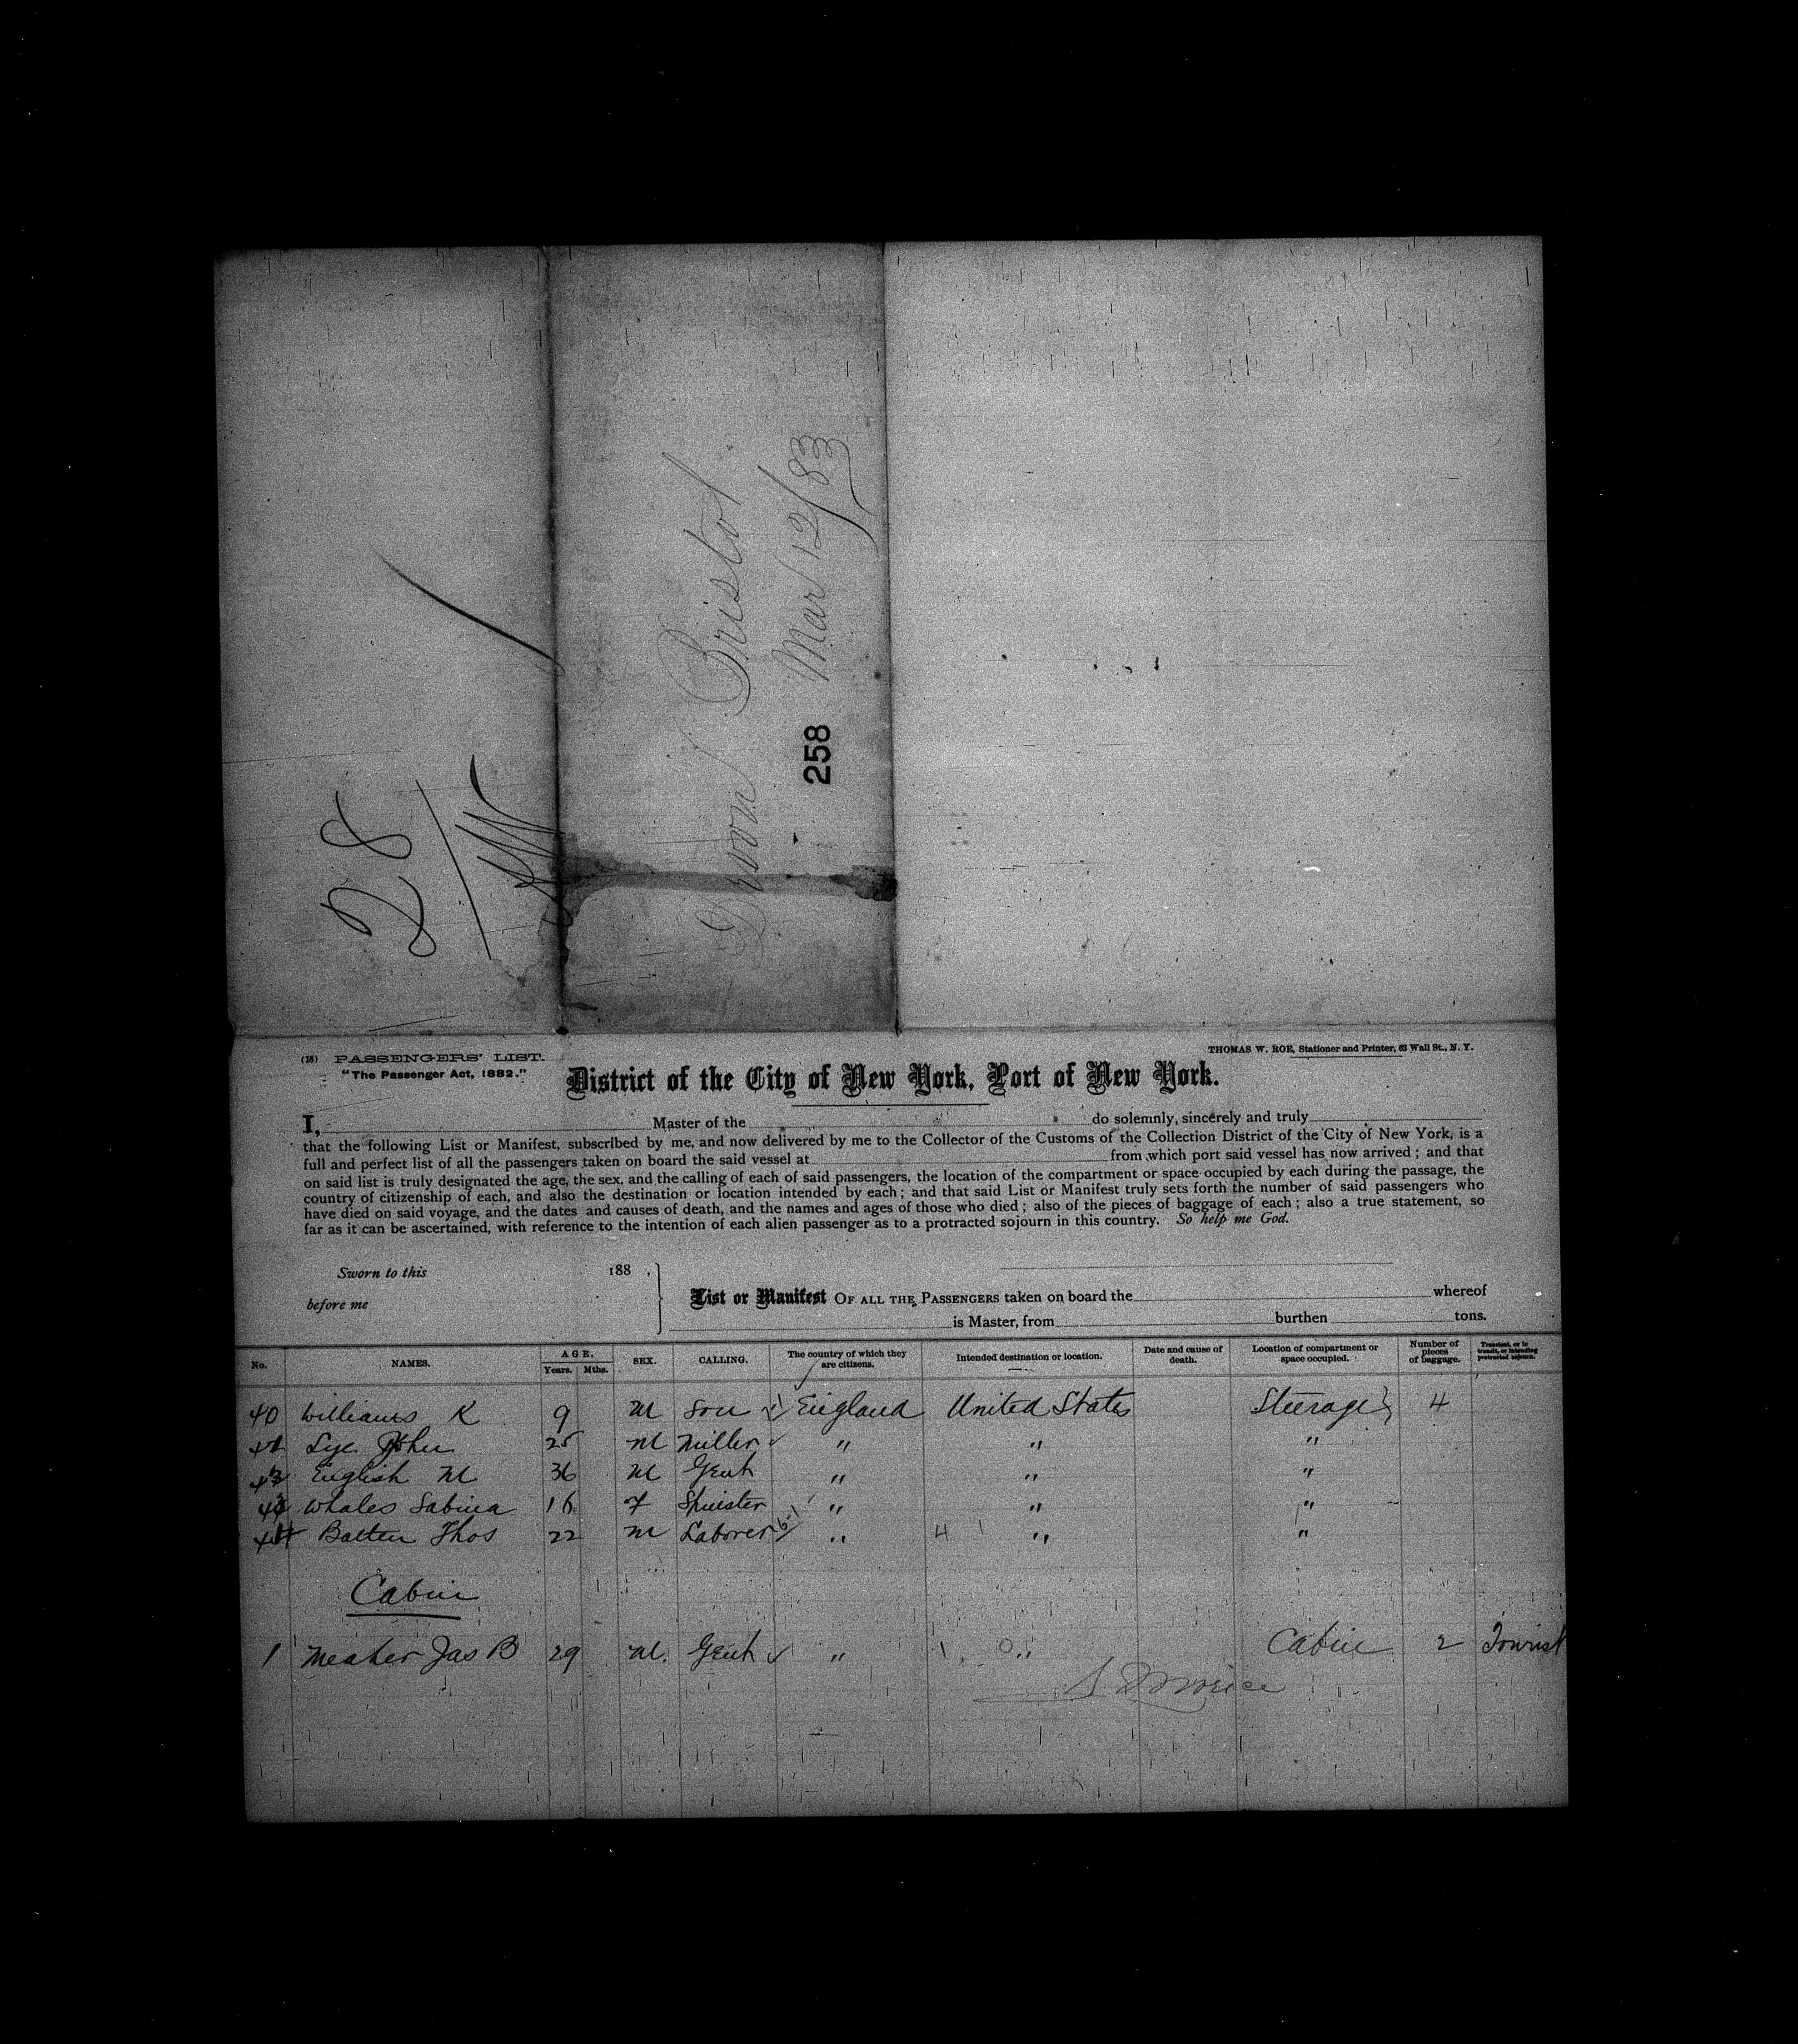 28
Devon Bristol
Mar 12/83
258
(18) PASSENGERS' LIST.
"The Passenger Act, 1882."
THOMAS W. ROE, Stationer and Printer, 63 Wall St., N. Y.
District of the City of New York, Port of New York.
I, Master of the do solemnly, sincerely and truly
that the following List or Manifest, subscribed by me, and now delivered by me to the Collector of the Customs of the Collection District of the City of New York, is a
full and perfect list of all the passengers taken on board the said vessel at from which port said vessel has now arrived; and that
on said list is truly designated the age, the sex, and the calling of each of said passengers, the location of the compartment or space occupied by each during the passage, the
country of citizenship of each, and also the destination or location intended by each; and that said List or Manifest truly sets forth the number of said passengers who
have died on said voyage, and the dates and causes of death, and the names and ages of those who died; also of the pieces of baggage of each; also a true statement, so
far as it can be ascertained, with reference to the intention of each alien passenger as to a protracted sojourn in this country. So help me God.
Sworn to this 188 .
before me
List or Manifest OF ALL THE PASSENGERS taken on board the whereof
is Master, from burthen tons.
No. NAMES. AGE. Years. Mths. SEX. CALLING. The country of which they are citizens. Intended destination or location. Date and cause of death. Location of compartment or space occupied. Number of pieces of baggage. Transient, or in transit, or intending protracted sojourn.
40 Williams K 9 M Son England United States Steerage 4
Lye John 25 M Miller " " "
English M 36 M Gent " " "
Whales Sabina 16 F Spinster " " "
44 Batten Thos 22 M Laborer " " "
Cabin
1 Meaker Jas B 29 M. Gent " " Cabin 2 Tourist